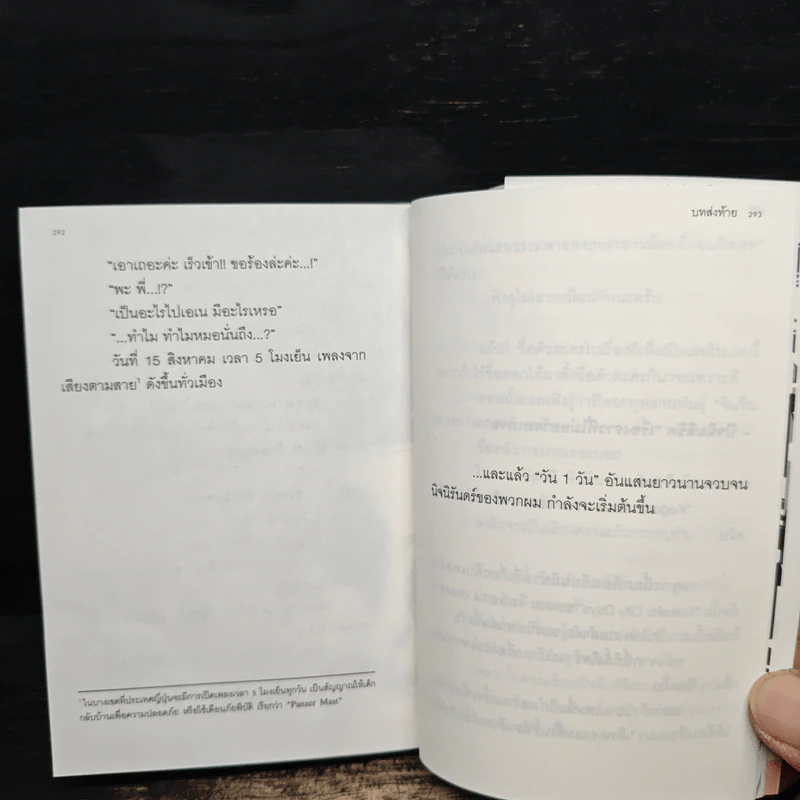 292
"เอาเถอะค่ะ เร็วเข้า!! ขอร้องล่ะค่ะ...!"
"พะ พี่...!?"
"เป็นอะไรไปเอเน มีอะไรเหรอ"
"...ทำไม ทำไมหมอนั่นถึง...?"
วันที่ 15 สิงหาคม เวลา 5 โมงเย็น เพลงจาก
เสียงตามสาย¹ ดังขึ้นทั่วเมือง
¹ในบางเขตที่ประเทศญี่ปุ่นจะมีการเปิดเพลงเวลา 5 โมงเย็นทุกวัน เป็นสัญญาณให้เด็ก
กลับบ้านเพื่อความปลอดภัย หรือใช้เตือนภัยพิบัติ เรียกว่า "Panzer Mast"
บทส่งท้าย 293
...และแล้ว "วัน 1 วัน" อันแสนยาวนานจวบจน
นิจนิรันดร์ของพวกผม กำลังจะเริ่มต้นขึ้น